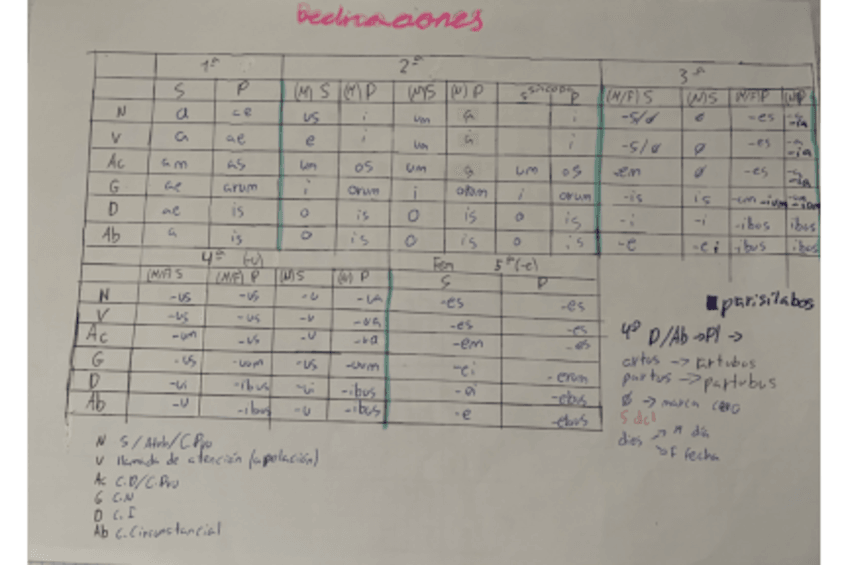 Declinaciones
1ª 2ª 3ª
S P (M) S (M) P (N) S (N) P S P (M/F) S (N) S (M/F) P (N) P
N a ae us i um a i -s/ø ø -es -ia
V a ae e i um a i -s/ø ø -es -ia
Ac am as um os um a um os -em ø -es -ia
G ae arum i orum i orum i orum -is is -um -ium
D ae is o is o is o is -i -i -ibus ibus
Ab a is o is o is o is -e -e i -ibus ibus
4ª (-u) Fem 5ª (-e)
(M/F) S (M/F) P (N) S (N) P S P
N -us -us -u -ua -es -es
V -us -us -u -ua -es -es
Ac -um -us -u -ua -em -es
G -us -uum -us -uum -ei -erum
D -ui -ibus -ui -ibus -ei -ebus
Ab -u -ibus -u -ibus -e -ebus
parisilabos
4ª D/Ab → Pl →
artus → artubus
partus → partubus
ø → marca cero
5 dcl
dies → M día
→ F fecha
N S/Atrib/C.Pvo
V llamada de atención (apelación)
Ac C.D/C.Pvo
G C.N
D C.I
Ab C.Circunstancial